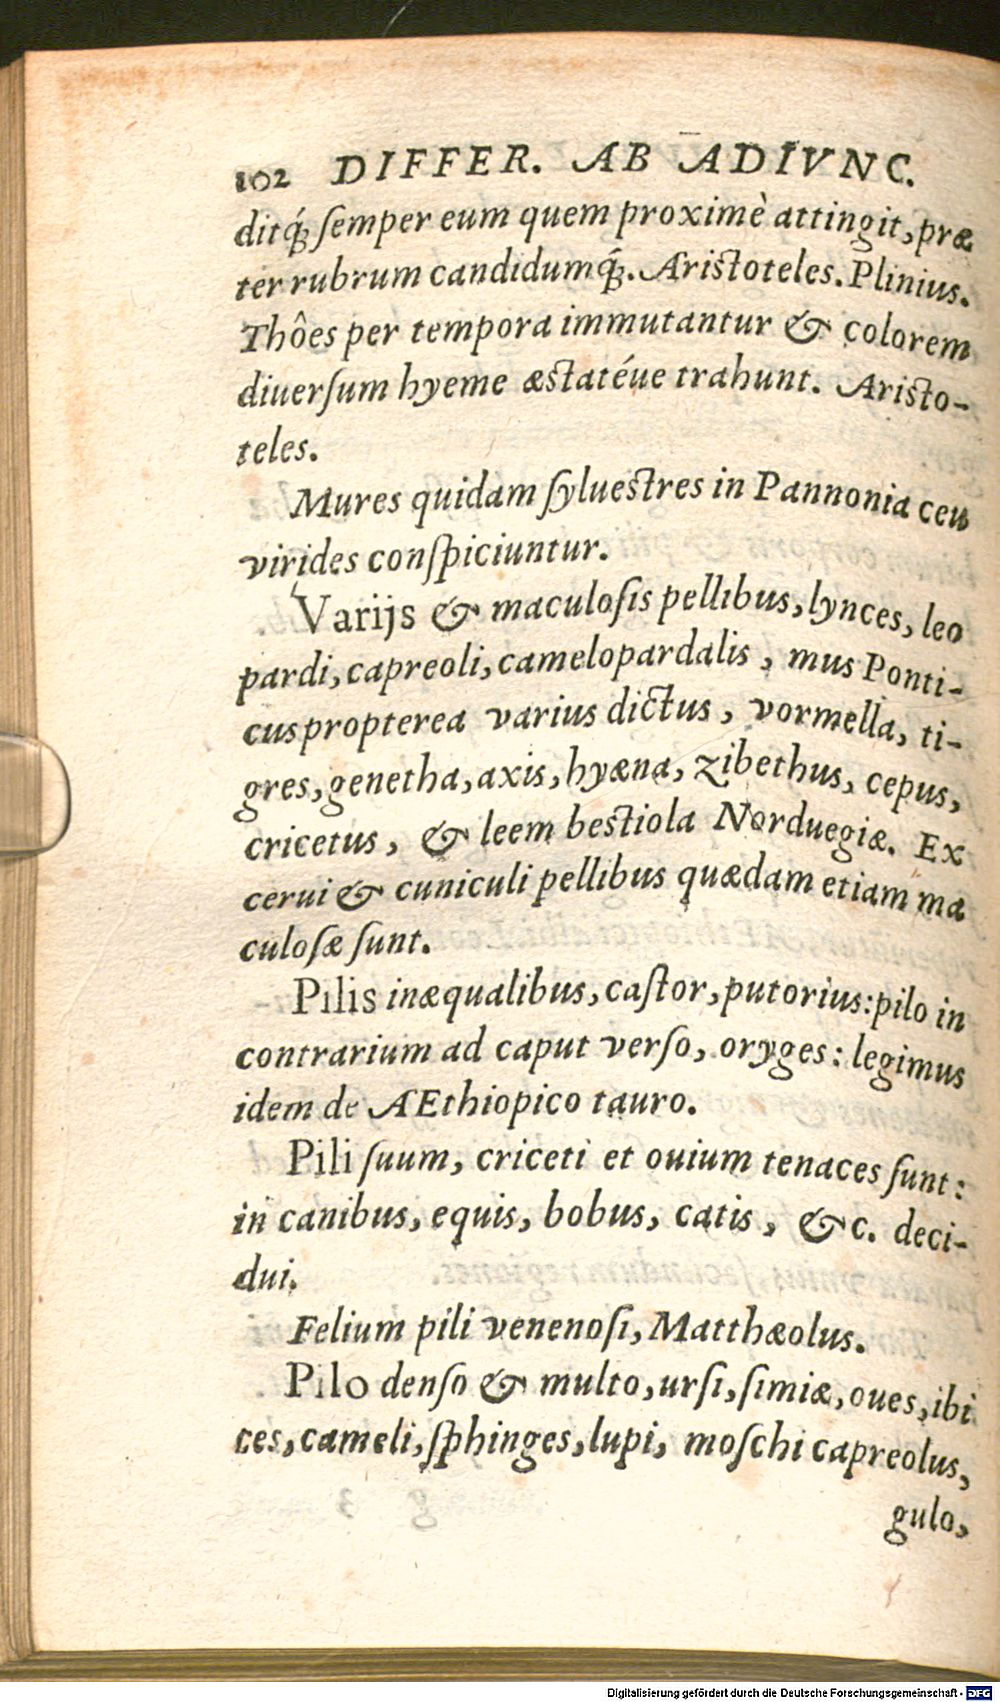 102 DIFFER. AB ADIVNC.
ditq́; ſemper eum quem proximè attingit, præ
ter rubrum candidumq́;. Ariſtoteles. Plinius.
Thôes per tempora immutantur & colorem
diuerſum hyeme æſtatéue trahunt. Ariſto-
teles.
Mures quidam ſylueſtres in Pannonia ceu
virides conſpiciuntur.
Varijs & maculoſis pellibus, lynces, leo
pardi, capreoli, camelopardalis, mus Ponti-
cus propterea varius dictus, vormella, ti-
gres, genetha, axis, hyæna, zibethus, cepus,
cricetus, & leem beſtiola Norduegiæ. Ex
cerui & cuniculi pellibus quædam etiam ma
culoſæ ſunt.
Pilis inæqualibus, caſtor, putorius: pilo in
contrarium ad caput verſo, oryges: legimus
idem de AEthiopico tauro.
Pili ſuum, criceti et ouium tenaces ſunt:
in canibus, equis, bobus, catis, &c. deci-
dui.
Felium pili venenoſi, Matthæolus.
Pilo denſo & multo, urſi, ſimiæ, oues, ibi
ces, cameli, ſphinges, lupi, moſchi capreolus,
gulo,
Digitalisierung gefördert durch die Deutsche Forschungsgemeinschaft - DFG